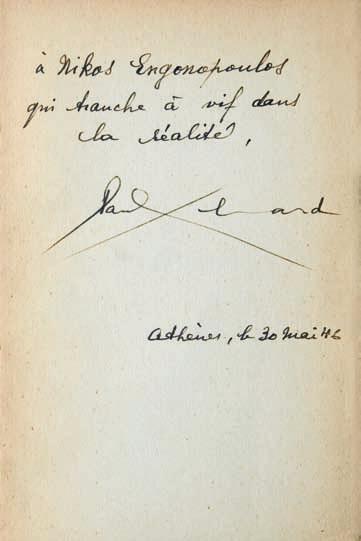 à Nikos Engonopoulos
qui tranche à vif dans
la réalité,
Paul Eluard
Athènes, le 30 Mai 46